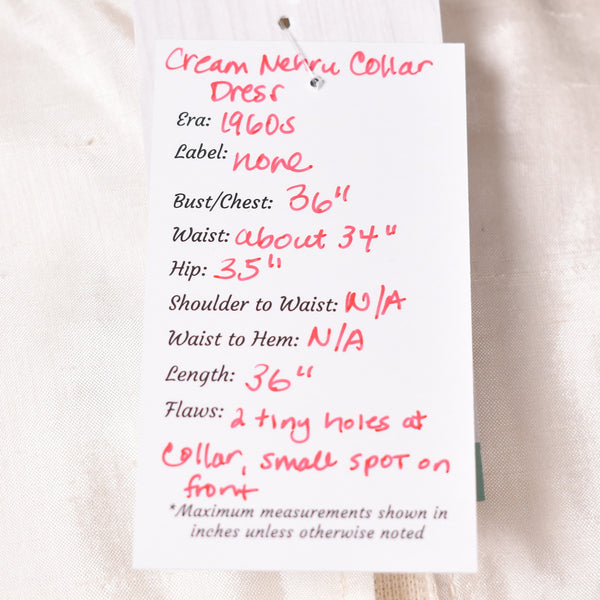 Cream Nehru Collar
Dress
Era: 1960s
Label: none
Bust/Chest: 36"
Waist: about 34"
Hip: 35"
Shoulder to Waist: N/A
Waist to Hem: N/A
Length: 36"
Flaws: 2 tiny holes at
Collar, small spot on
front
*Maximum measurements shown in
inches unless otherwise noted